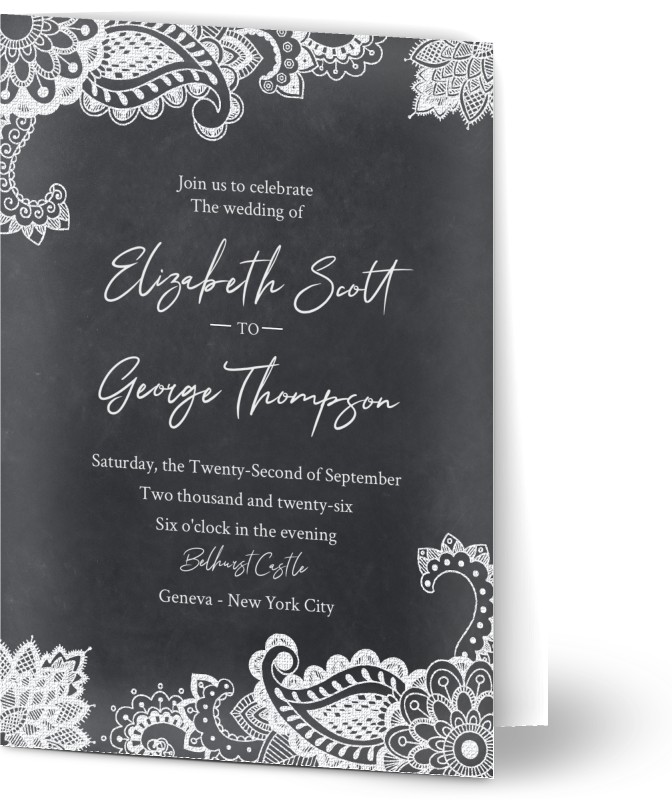 Join us to celebrate
The wedding of
Elizabeth Scott
— TO —
George Thompson
Saturday, the Twenty-Second of September
Two thousand and twenty-six
Six o'clock in the evening
Belhurst Castle
Geneva - New York City